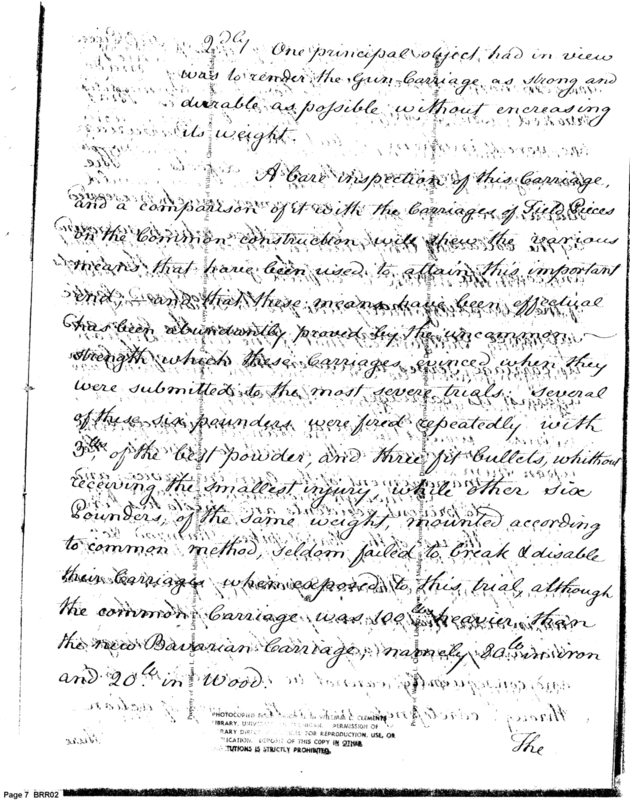 2dly One principal object had in view
was to render the Gun Carriage as strong and
durable as possible without encreasing
its weight.
A bare inspection of this Carriage,
and a comparison of it with the Carriages of Field Pieces
on the Common construction will shew the various
means that have been used to attain this important
end; — and that these means have been effectual
has been abundantly proved by the uncommon
strength which these Carriages evinced when they
were submitted to the most severe trials. Several
of these six pounders were fired repeatedly with
3lbs of the best powder, and three fit bullets, whithout
receiving the smallest injury, while other six
Pounders, of the same weight, mounted according
to common method, seldom failed to break & disable
their Carriages when exposed to this trial, although
the common Carriage was 100lbs heavier than
the new Bavarian Carriage; namely 80lb in iron
and 20lb in Wood.
The
PHOTOCOPIED WILLIAM L. CLEMENTS
LIBRARY, PERMISSION OF
FOR REPRODUCTION, USE, OR
OF THIS COPY IN OTHER
INSTITUTIONS IS STRICTLY PROHIBITED.
Page 7 BRR02